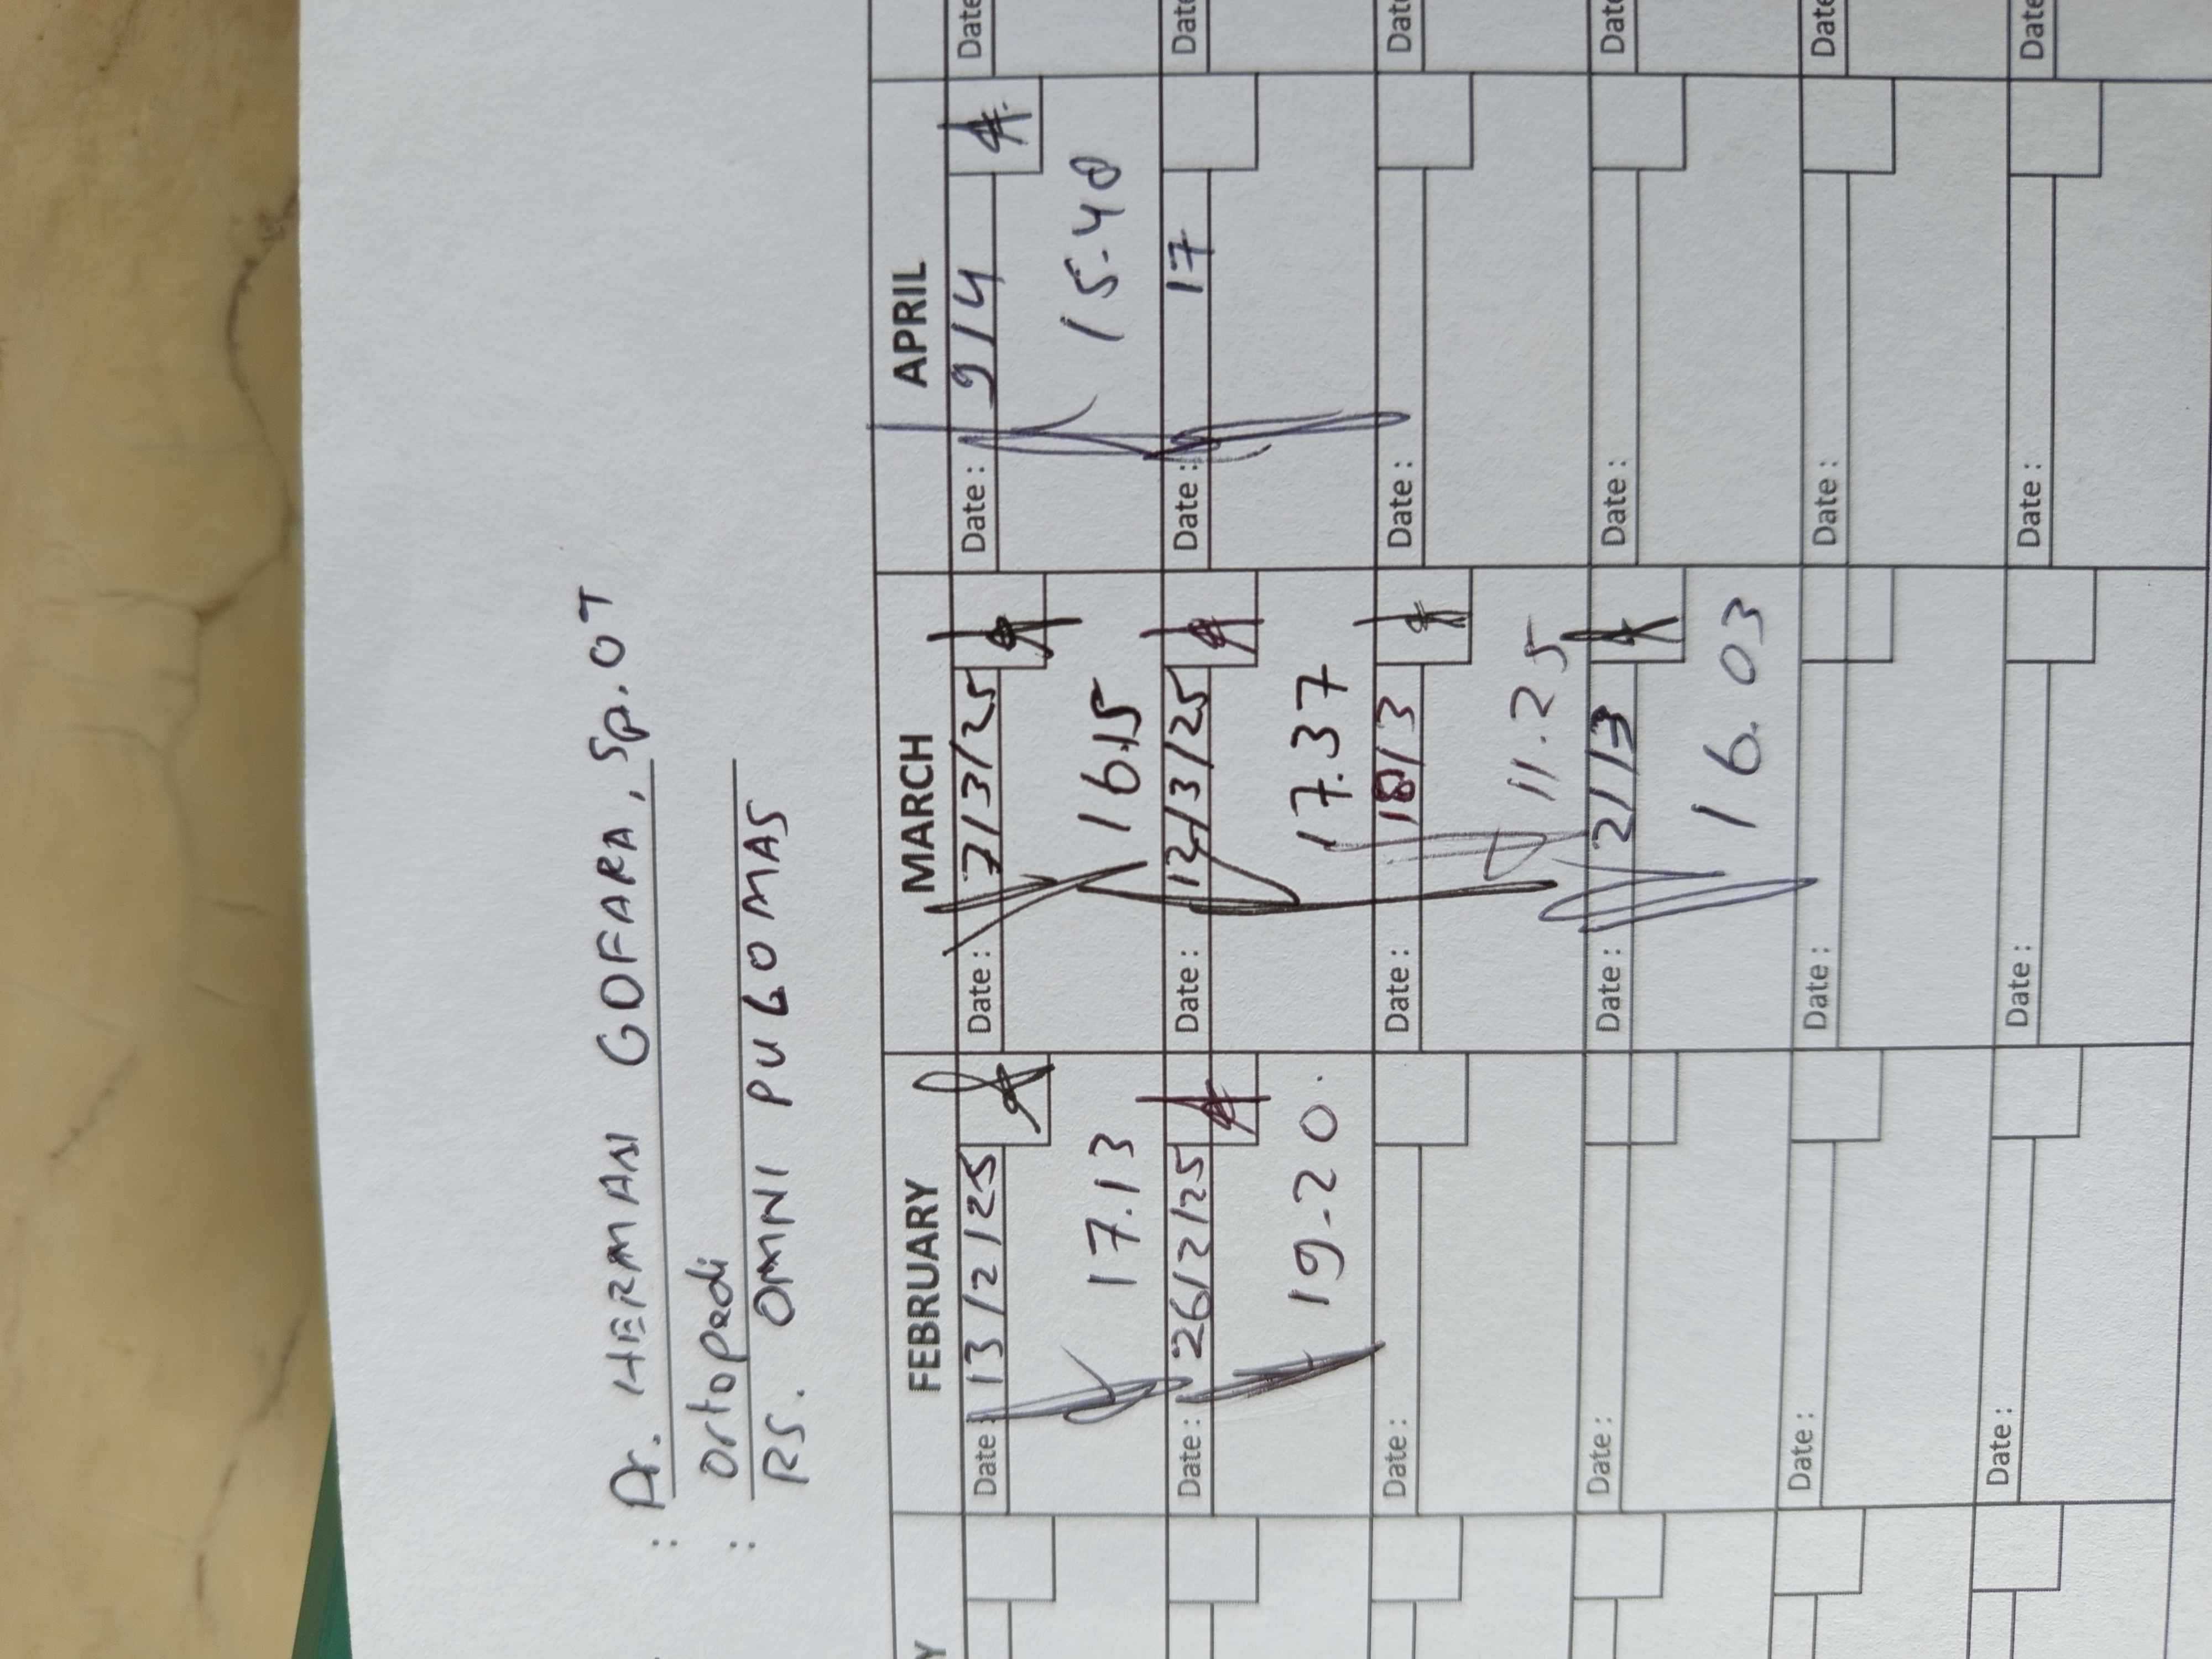 : Dr. HERMAN GOFARA, Sp.OT
: Ortopedi
RS. OMNI PULOMAS
Y FEBRUARY MARCH APRIL
Date : 13/2/25 Date : 7/3/25 Date : 9/4 Date
17.13 16.15 15-40
Date : 26/2/25 Date : 12/3/25 Date : 17 Date
19-20. 17.37
Date : Date : 18/3 Date : Date
11.25
Date : Date : 21/3 Date : Date
16.03
Date : Date : Date : Date
Date : Date : Date : Date